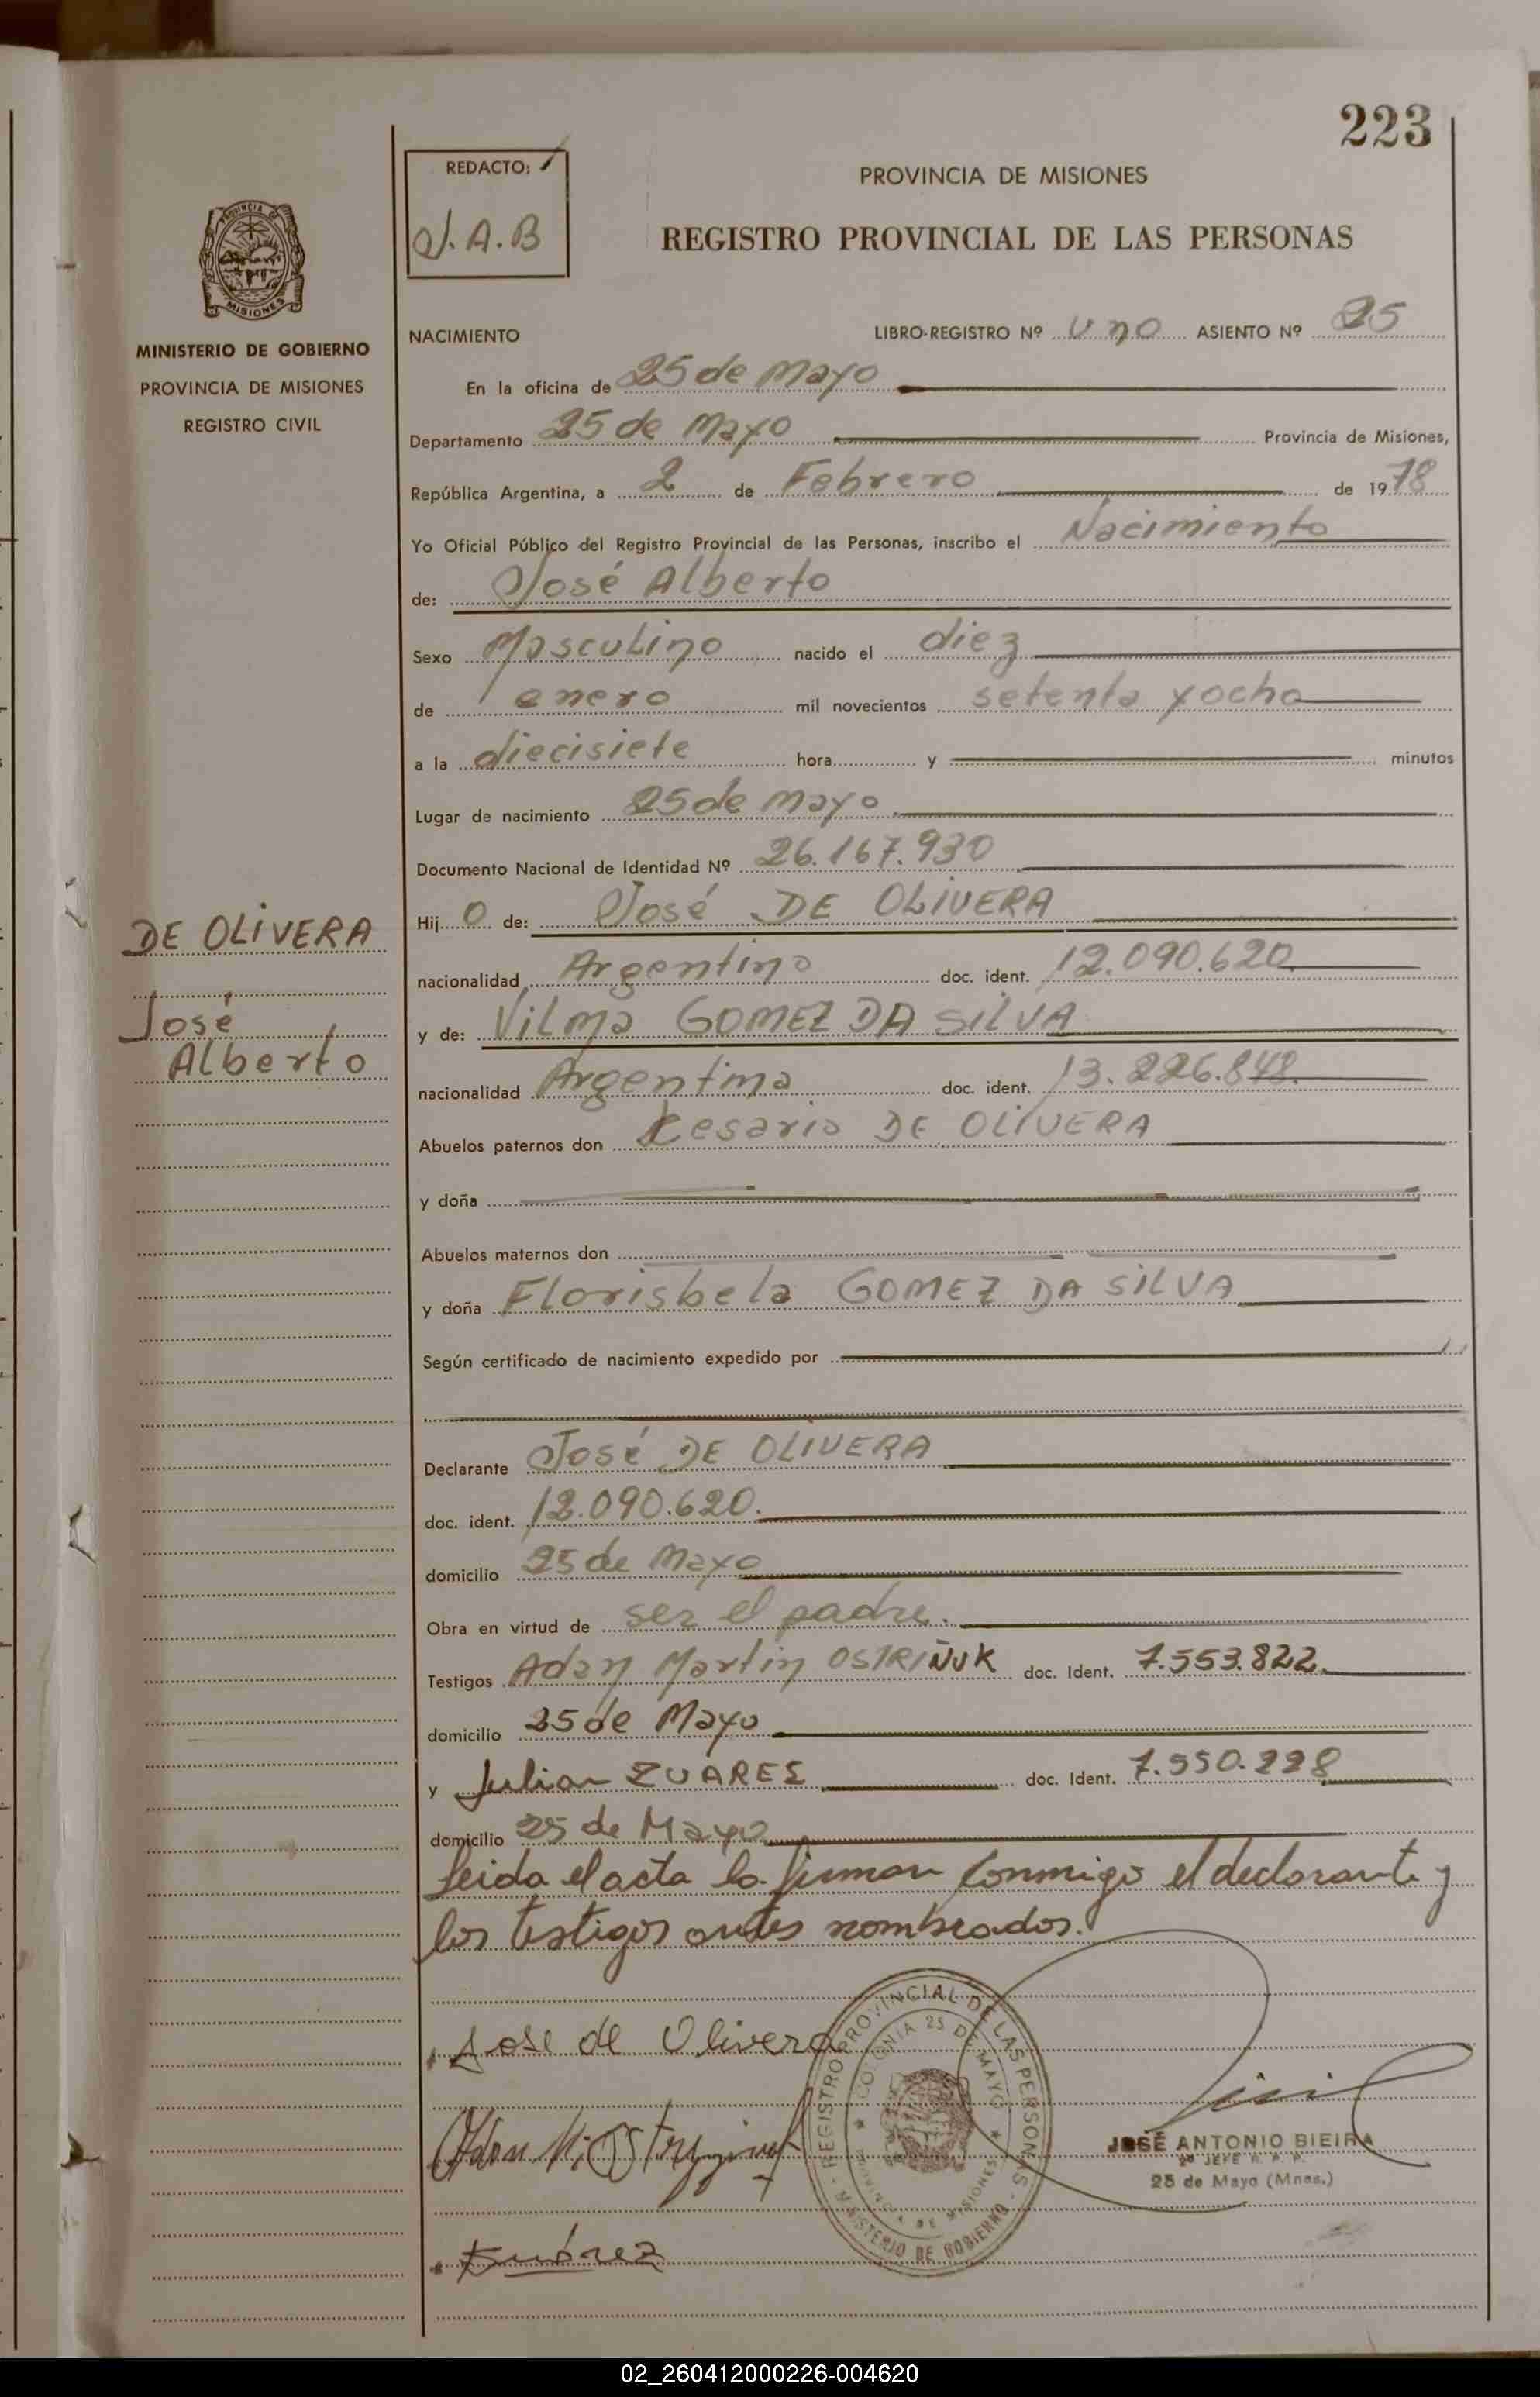 223
REDACTO:
J.A.B
PROVINCIA DE MISIONES
REGISTRO PROVINCIAL DE LAS PERSONAS
PROVINCIA DE MISIONES
MINISTERIO DE GOBIERNO
PROVINCIA DE MISIONES
REGISTRO CIVIL
DE OLIVERA
José
Alberto
NACIMIENTO LIBRO-REGISTRO Nº uno ASIENTO Nº 25
En la oficina de 25 de Mayo
Departamento 25 de Mayo Provincia de Misiones,
República Argentina, a 2 de Febrero de 1978
Yo Oficial Público del Registro Provincial de las Personas, inscribo el Nacimiento
de: José Alberto
Sexo Masculino nacido el diez
de enero mil novecientos setenta y ocho
a la diecisiete hora y minutos
Lugar de nacimiento 25 de Mayo
Documento Nacional de Identidad Nº 26.167.930
Hij o de: José DE OLIVERA
nacionalidad Argentino doc. ident. 12.090.620
y de: Vilma GOMEZ DA SILVA
nacionalidad Argentina doc. ident. 13.226.848.
Abuelos paternos don Cesario DE OLIVERA
y doña
Abuelos maternos don
y doña Florisbela GOMEZ DA SILVA
Según certificado de nacimiento expedido por
Declarante José DE OLIVERA
doc. ident. 12.090.620.
domicilio 25 de Mayo
Obra en virtud de ser el padre.
Testigos Adan Martin OSTRIÑUK doc. Ident. 7.553.822.
domicilio 25 de Mayo
y Julian ZUARES doc. Ident. 7.550.228
domicilio 25 de Mayo
Leida el acta la firman conmigo el declarante y
los testigos antes nombrados.
Jose de Olivera
REGISTRO PROVINCIAL DE LAS PERSONAS
COLONIA 25 DE MAYO
PROVINCIA DE MISIONES
MINISTERIO DE GOBIERNO
JOSÉ ANTONIO BIEIRA
2º JEFE R. P. P.
25 de Mayo (Mnes.)
Suárez
02_260412000226-004620